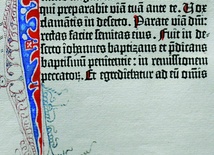 qui preparabit viā tuā ante te. Vox
clamātis in deserto. Parate viā dn̄i
rectas facite semitas eius. Fuit in de
serto iohannes baptizans et p̄dicans
baptismū penitentie: in remissionem
peccatoꝝ. Et egrediebatur ad eū omnis